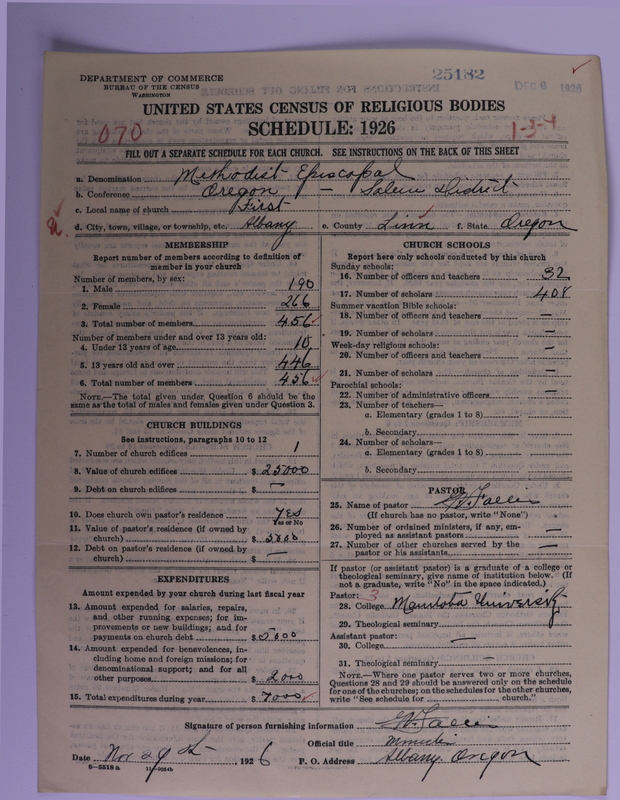 DEPARTMENT OF COMMERCE
BUREAU OF THE CENSUS
WASHINGTON
25182
DEC 6 1926
UNITED STATES CENSUS OF RELIGIOUS BODIES
SCHEDULE: 1926
070
1-3-4
FILL OUT A SEPARATE SCHEDULE FOR EACH CHURCH. SEE INSTRUCTIONS ON THE BACK OF THIS SHEET
a. Denomination Methodist Episcopal
b. Conference Oregon — Salem District
c. Local name of church First
d. City, town, village, or township, etc. Albany e. County Linn f. State Oregon
MEMBERSHIP
Report number of members according to definition of
member in your church
Number of members, by sex:
1. Male 190
2. Female 266
3. Total number of members 456
Number of members under and over 13 years old:
4. Under 13 years of age 10
5. 13 years old and over 446
6. Total number of members 456
NOTE.—The total given under Question 6 should be
same as the total of males and females given under Question 3.
CHURCH BUILDINGS
See instructions, paragraphs 10 to 12
7. Number of church edifices 1
8. Value of church edifices $ 25000
9. Debt on church edifices $ —
10. Does church own pastor's residence Yes
Yes or No
11. Value of pastor's residence (if owned by
church) $ 3000
12. Debt on pastor's residence (if owned by
church) $ —
EXPENDITURES
Amount expended by your church during last fiscal year
13. Amount expended for salaries, repairs,
and other running expenses; for im-
provements or new buildings; and for
payments on church debt $ 5000
14. Amount expended for benevolences, in-
cluding home and foreign missions; for
denominational support; and for all
other purposes $ 2000
15. Total expenditures during year $ 7000
CHURCH SCHOOLS
Report here only schools conducted by this church
Sunday schools:
16. Number of officers and teachers 32
17. Number of scholars 408
Summer vacation Bible schools:
18. Number of officers and teachers —
19. Number of scholars —
Week-day religious schools:
20. Number of officers and teachers —
21. Number of scholars —
Parochial schools:
22. Number of administrative officers —
23. Number of teachers—
a. Elementary (grades 1 to 8)
b. Secondary
24. Number of scholars—
a. Elementary (grades 1 to 8)
b. Secondary
PASTOR
25. Name of pastor
(If church has no pastor, write "None")
26. Number of ordained ministers, if any, em-
ployed as assistant pastors —
27. Number of other churches served by the
pastor or his assistants —
If pastor (or assistant pastor) is a graduate of a college or
theological seminary, give name of institution below. (If
not a graduate, write "No" in the space indicated.)
Pastor: 3
28. College Manitoba University
29. Theological seminary
Assistant pastor: —
30. College
31. Theological seminary —
NOTE.—Where one pastor serves two or more churches,
Questions 28 and 29 should be answered only on the schedule
for one of the churches; on the schedules for the other churches,
write "See schedule for church."
Signature of person furnishing information
Official title Minister
Date Nov 29th 1926 P. O. Address Albany Oregon
8—5518a